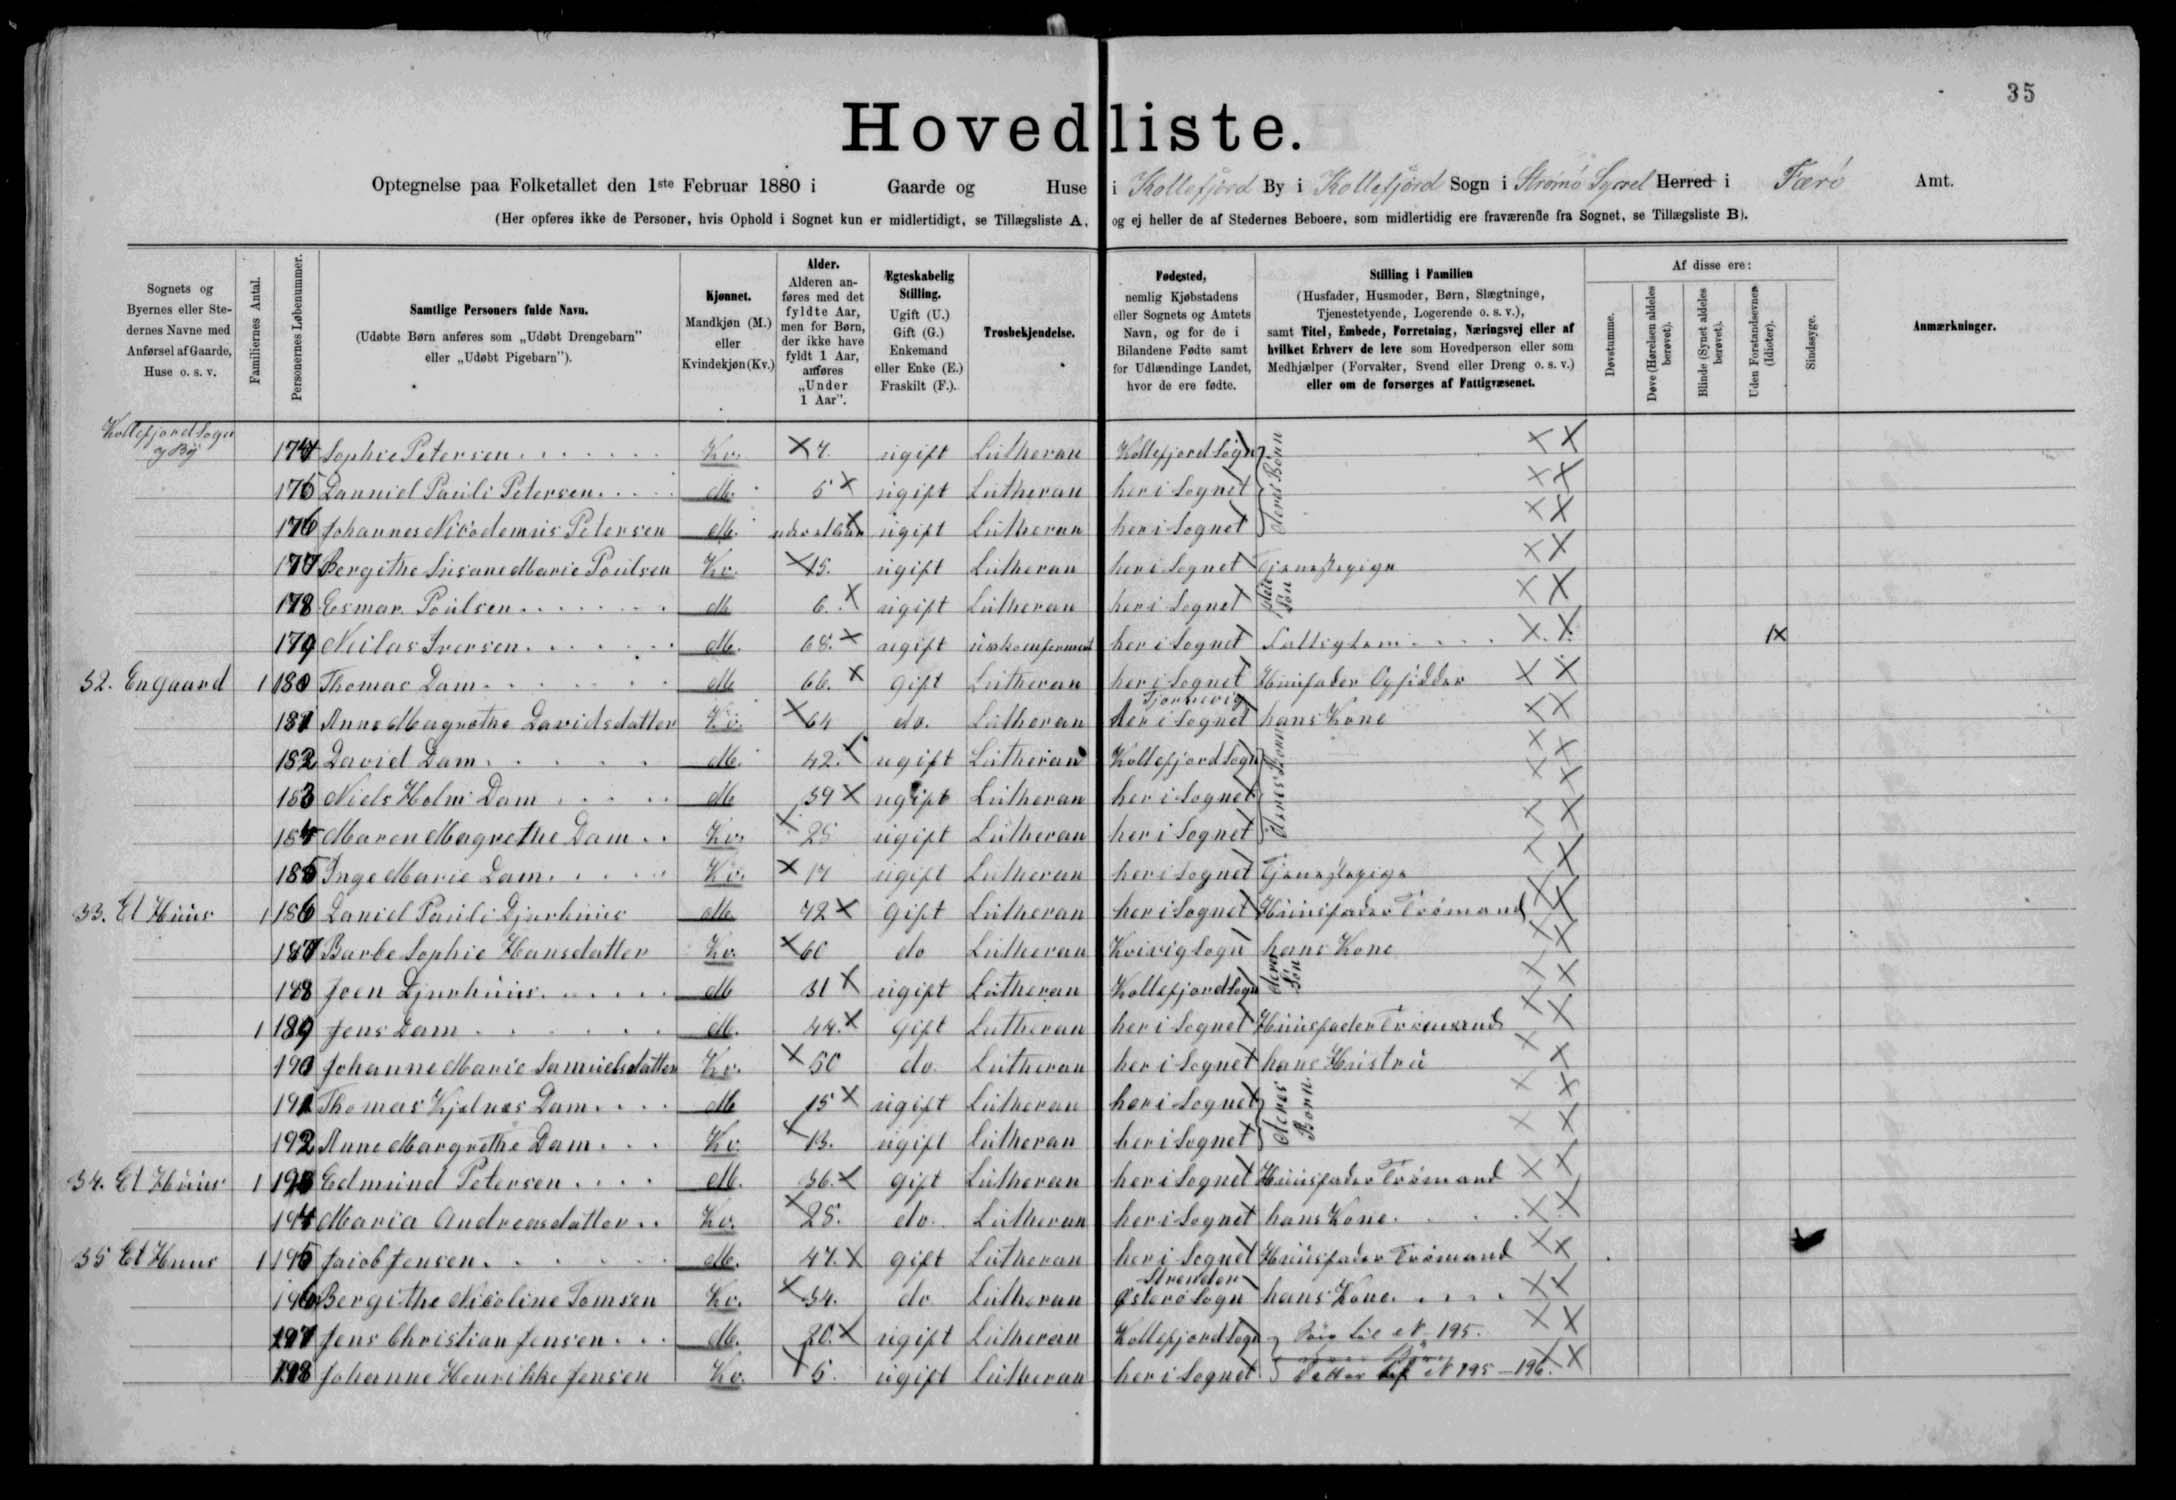 35
Hovedliste.
Optegnelse paa Folketallet den 1ste Februar 1880 i Gaarde og Huse i Kollefjord By i Kollefjord Sogn i Strømø Syssel Herred i Færø Amt.
(Her opføres ikke de Personer, hvis Ophold i Sognet kun er midlertidigt, se Tillægsliste A, og ej heller de af Stedernes Beboere, som midlertidig ere fraværende fra Sognet, se Tillægsliste B).
Sognets og Byernes eller Stedernes Navne med Anførsel af Gaarde, Huse o. s. v.
Familiernes Antal.
Personernes Løbenummer.
Samtlige Personers fulde Navn.
(Udøbte Børn anføres som „Udøbt Drengebarn" eller „Udøbt Pigebarn").
Kjønnet.
Mandkjøn (M.) eller Kvindekjøn (Kv.)
Alder.
Alderen anføres med det fyldte Aar, men for Børn, der ikke have fyldt 1 Aar, anføres „Under 1 Aar".
Ægteskabelig Stilling.
Ugift (U.) Gift (G.) Enkemand eller Enke (E.) Fraskilt (F.).
Trosbekjendelse.
Fødested,
nemlig Kjøbstadens eller Sognets og Amtets Navn, og for de i Bilandene Fødte samt for Udlændinge Landet, hvor de ere fødte.
Stilling i Familien
(Husfader, Husmoder, Børn, Slægtninge, Tjenestetyende, Logerende o. s. v.),
samt Titel, Embede, Forretning, Næringsvej eller af hvilket Erhverv de leve som Hovedperson eller som Medhjælper (Forvalter, Svend eller Dreng o. s. v.) eller om de forsørges af Fattigvæsenet.
Af disse ere:
Døvstumme.
Døve (Hørelsen aldeles berøvet).
Blinde (Synet aldeles berøvet).
Uden Forstandsevner (Idioter).
Sindssyge.
Anmærkninger.
Kollefjord Sogn og By
174 Sophie Petersen Kv. 7. ugift Lutheran Kollefjord Sogn deres Børn
175 Danniel Pauli Petersen M. 5 ugift Lutheran her i Sognet
176 Johannes Nicodemus Petersen M. ugift Lutheran her i Sognet
177 Bergithe Susane Marie Poulsen Kv. 15. ugift Lutheran her i Sognet Tjenestepige
178 Esmar Poulsen M 6. ugift Lutheran her i Sognet pleie Søn
179 Niclas Iversen M. 68. ugift her i Sognet Fattiglem 1
32. En gaard 1 180 Thomas Dam M 66. gift Lutheran her i Sognet Huusfader Opsidder
181 Anne Magrethe Davidsdatter Kv. 64 do. Lutheran Tjørnevig her i Sognet hans Kone
182 David Dam M. 42. ugift Lutheran Kollefjord Sogn deres Børn
183 Niels Holm Dam M 39 ugift Lutheran her i Sognet
184 Maren Magrethe Dam Kv. 25 ugift Lutheran her i Sognet
185 Inge Marie Dam Kv. 17 ugift Lutheran her i Sognet Tjenestepige
33. Et Huus 1 186 Daniel Pauli Djurhuus M. 72 gift Lutheran her i Sognet Huusfader Trømand
187 Barbe Sophie Hansdatter Kv. 60 do Lutheran Kvivig Sogn hans Kone
188 Joen Djurhuus M 31 ugift Lutheran Kollefjord Sogn deres Søn
1 189 Jens Dam M. 44. gift Lutheran her i Sognet Huusfader Trømand
190 Johanne Marie Samuelsdatter Kv. 50 do. Lutheran her i Sognet hans Hustru
191 Thomas Kjelnæs Dam M 15 ugift Lutheran her i Sognet deres Børn
192 Anne Margrethe Dam Kv. 13. ugift Lutheran her i Sognet
34. Et Huus 1 193 Edmund Petersen M. 36. gift Lutheran her i Sognet Huusfader Trømand
194 Maria Andreasdatter Kv. 25. do. Lutheran her i Sognet hans Kone
35 Et Huus 1 195 Jacob Jensen M. 47. gift Lutheran her i Sognet Huusfader Trømand
196 Bergithe Nicoline Tomsen Kv. 34. do Lutheran Strender Østerø Sogn hans Kone
197 Jens Christian Jensen M. 20. ugift Lutheran Kollefjord Sogn Søn til N 195.
198 Johanne Henrikke Jensen Kv. 5. ugift Lutheran her i Sognet Datter af N 195-196.